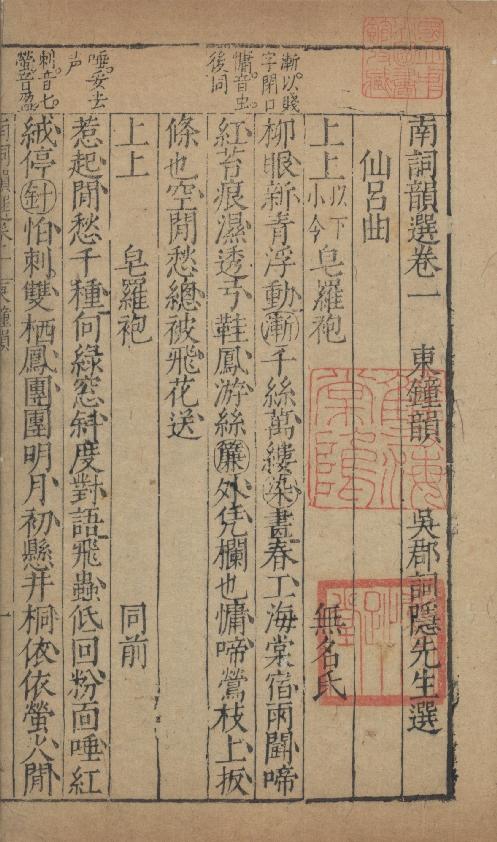 南詞韻選卷一　東鐘韻　吳郡詞隱先生選
仙呂曲
上上以下小令　皂羅袍　無名氏
漸以賤
字閉口
慵音虫
後同
柳眼新青浮動漸千絲萬縷染畫春工海棠宿雨鬭啼
紅苔痕濕透弓鞋鳳游絲簾外凭欄也慵啼鶯枝上扳
條也空閒愁總被飛花送
上上　皂羅袍　同前
唾妥去
声
刺音七
螢音盈
惹起閒愁千種何綠窓斜度對語飛蟲低回粉面唾紅
絨停針怕刺雙栖鳳團團明月初懸井桐依依螢火閒
南詞韻選卷一　東鐘韻　一